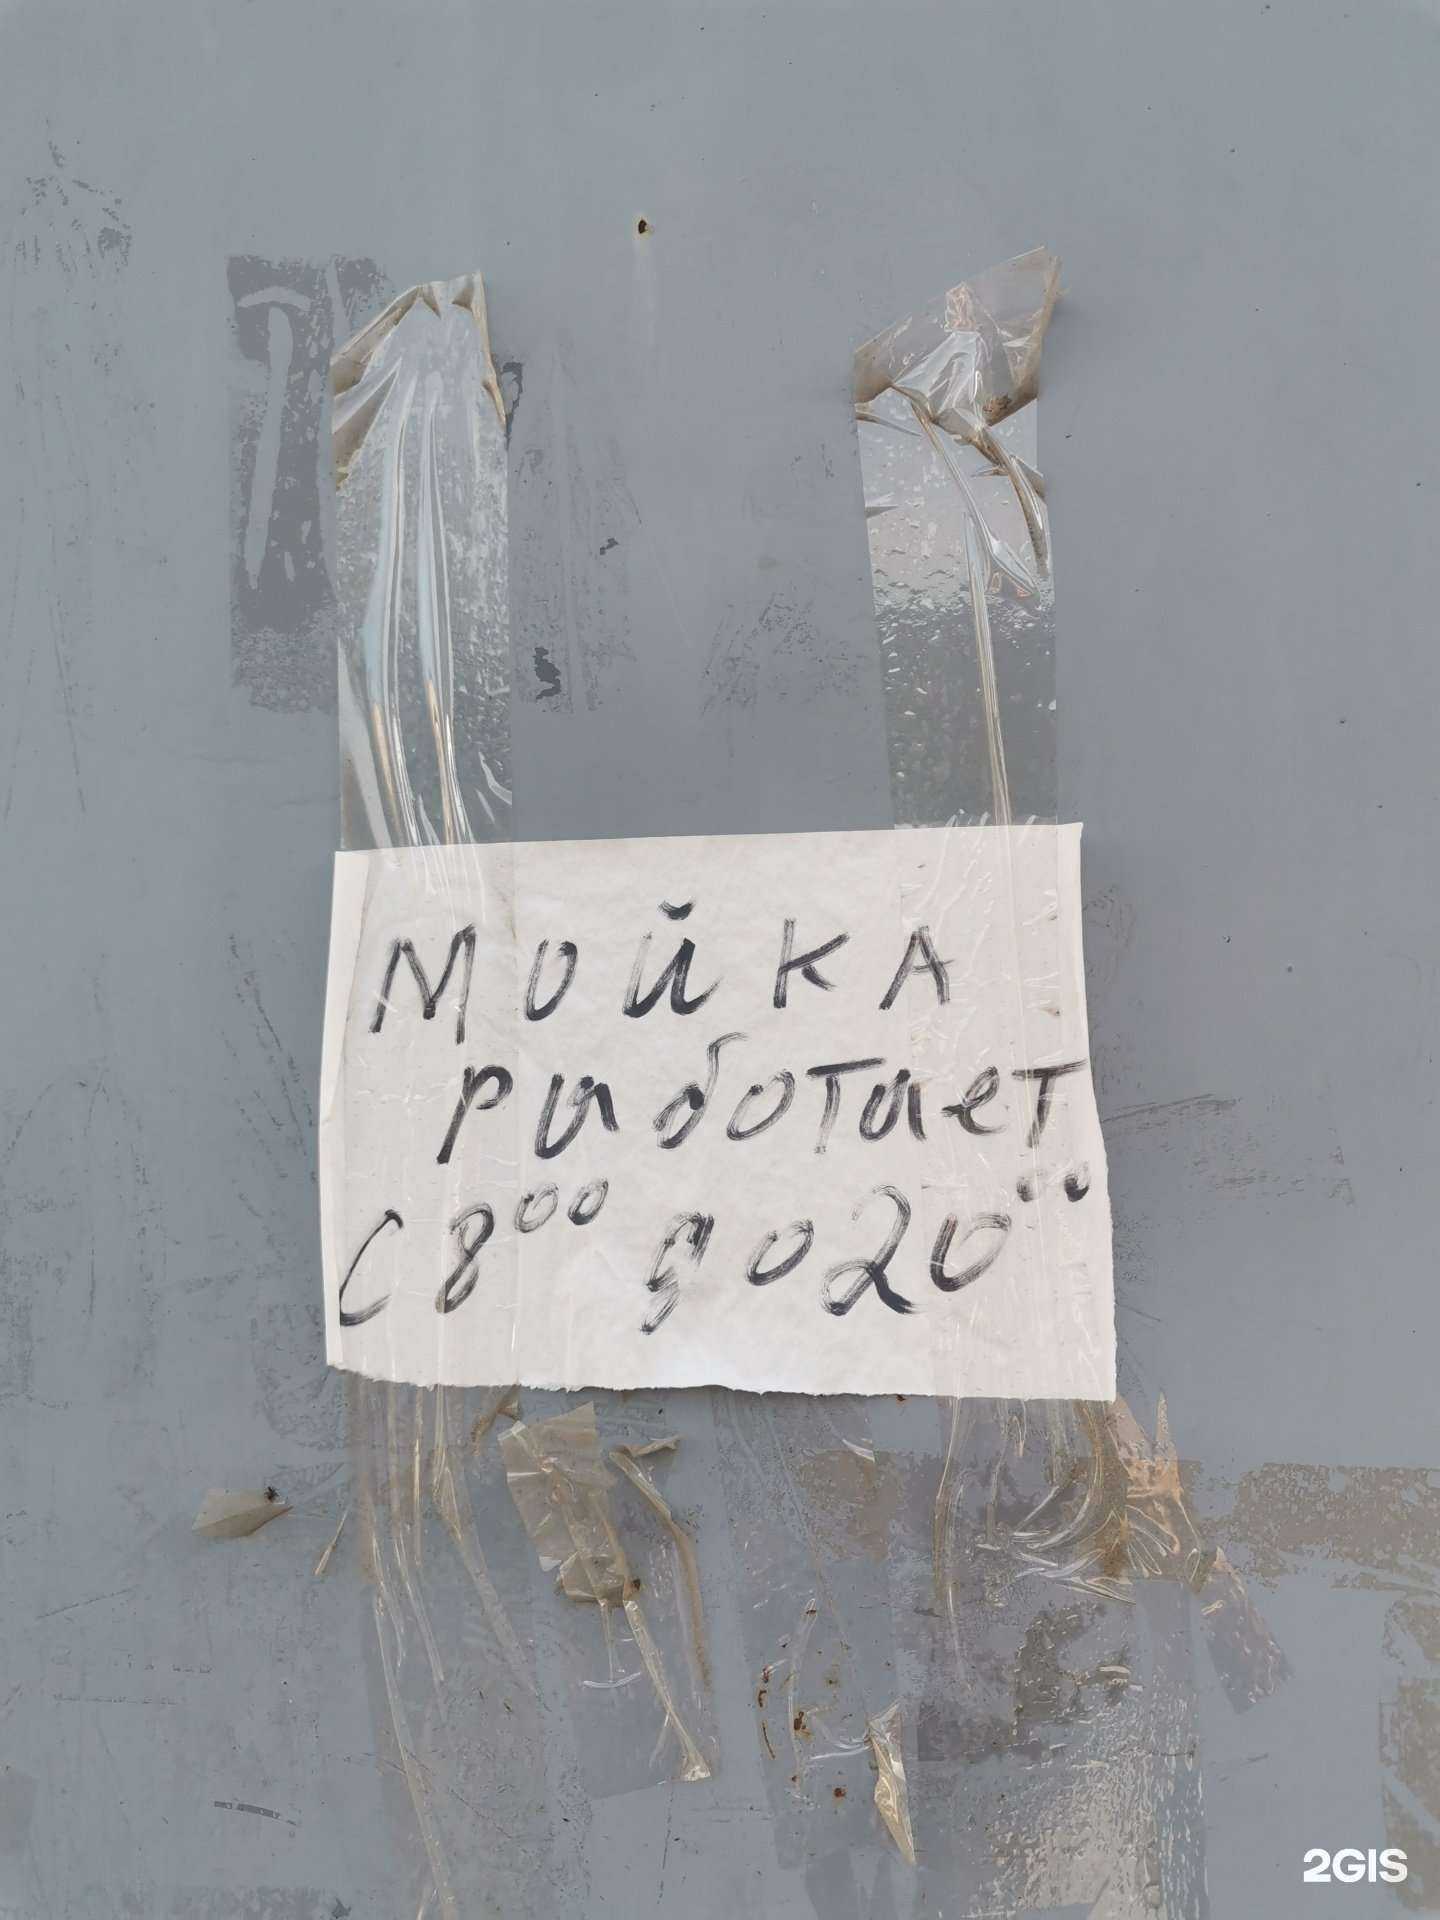 Мойка
работает
с 8⁰⁰ до 20⁰⁰
2GIS